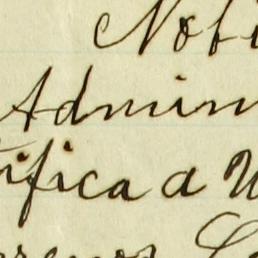 Nofi
Admin
tifica a U